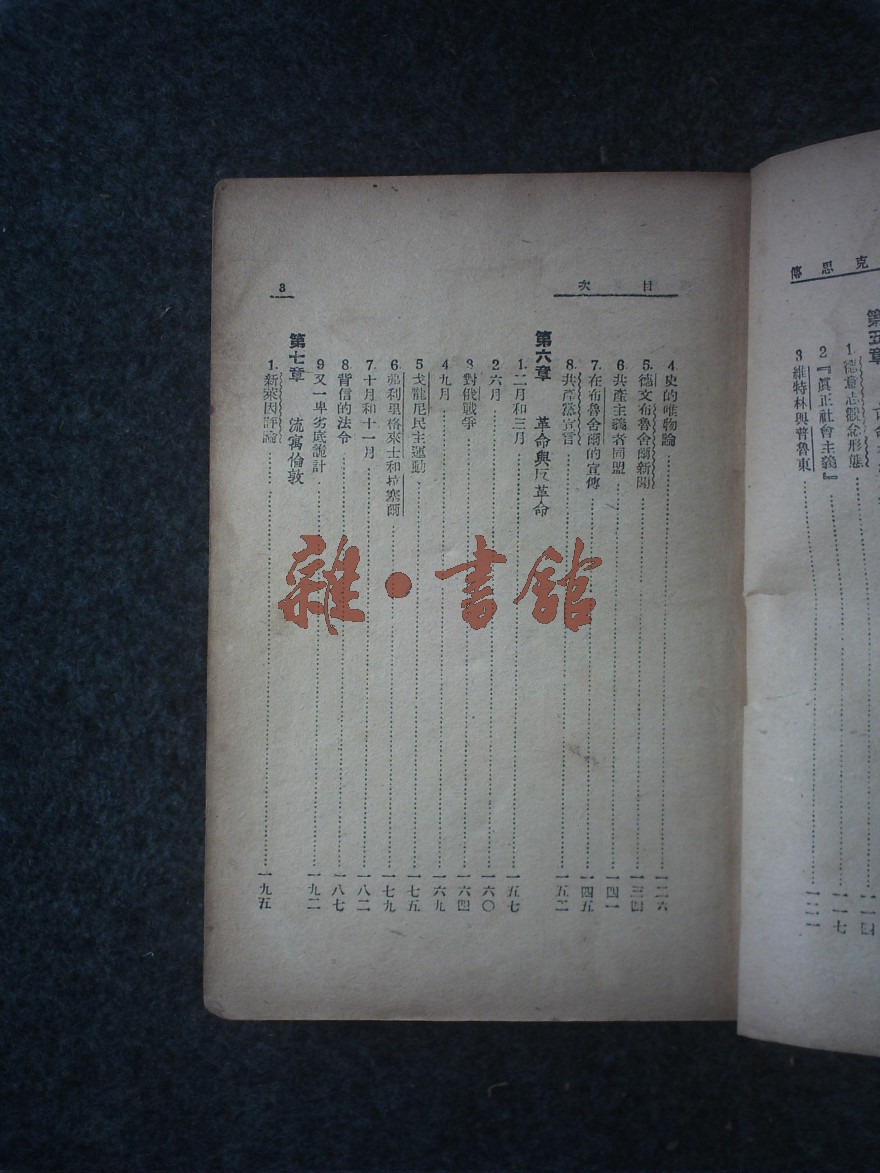 克思傳
第五章
1.德意志觀念形態
2『眞正社會主義』 一一七
3維特林與普魯東 一二一
目次
3
4.史的唯物論 一二六
5.德文布魯舍爾新聞 一三四
6.共產主義者同盟 一四一
7.在布魯舍爾的宣傳 一四五
8.共產黨宣言 一五二
第六章 革命與反革命
1.二月和三月 一五七
2六月 一六〇
3對俄戰爭 一六四
4九月 一六九
5戈龍尼民主運動 一七五
6.弗利里格來士和拉塞爾 一七九
7.十月和十一月 一八二
8背信的法令 一八七
9又一卑劣底詭計 一九二
第七章 流寓倫敦
1.新萊因評論 一九五
雜·書館